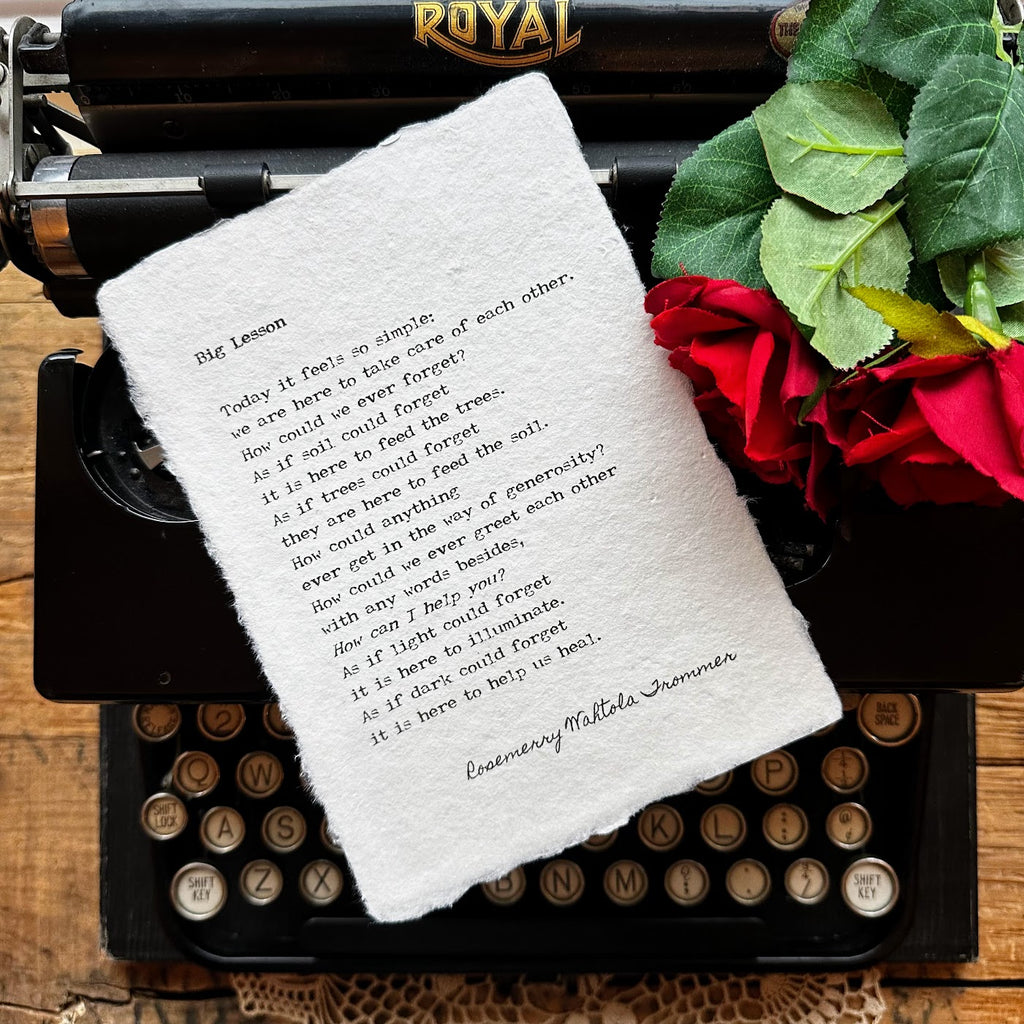 ROYAL
Big Lesson
Today it feels so simple:
we are here to take care of each other.
How could we ever forget?
As if soil could forget
it is here to feed the trees.
As if trees could forget
they are here to feed the soil.
How could anything
ever get in the way of generosity?
How could we ever greet each other
with any words besides,
How can I help you?
As if light could forget
it is here to illuminate.
As if dark could forget
it is here to help us heal.
Rosemerry Wahtola Trommer
2
BACK SPACE
Q W P
SHIFT LOCK A S K L
SHIFT KEY Z X B N M SHIFT KEY